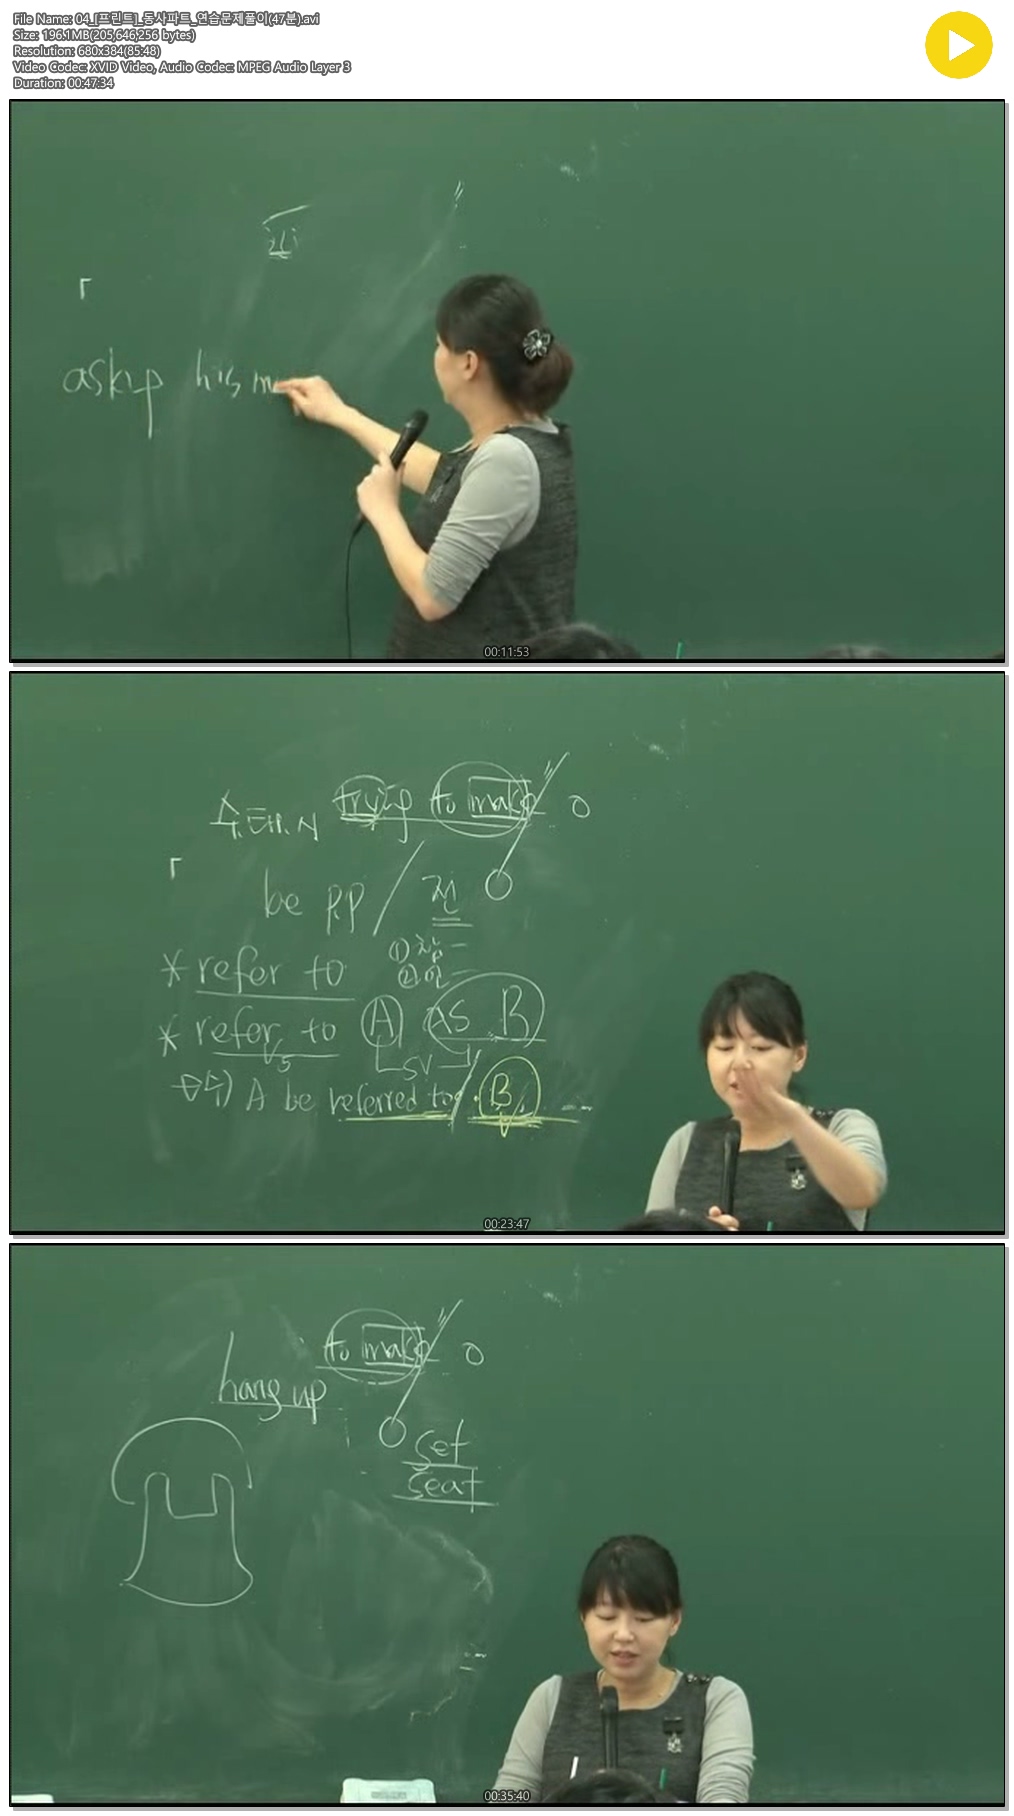 File Name: 04_[프린트]_동사파트_연습문제풀이(47분).avi
Size: 196.1MB(205,646,256 bytes)
Resolution: 680x384(85:48)
Video Codec: XVID Video, Audio Codec: MPEG Audio Layer 3
Duration: 00:47:34
his
00:11:53
수.태.시 trying to make O
be p.p / 전
* refer to
* refer to A as B
V5
SV
A be referred to B
00:23:47
to make O
hang up
set
seat
00:35:40